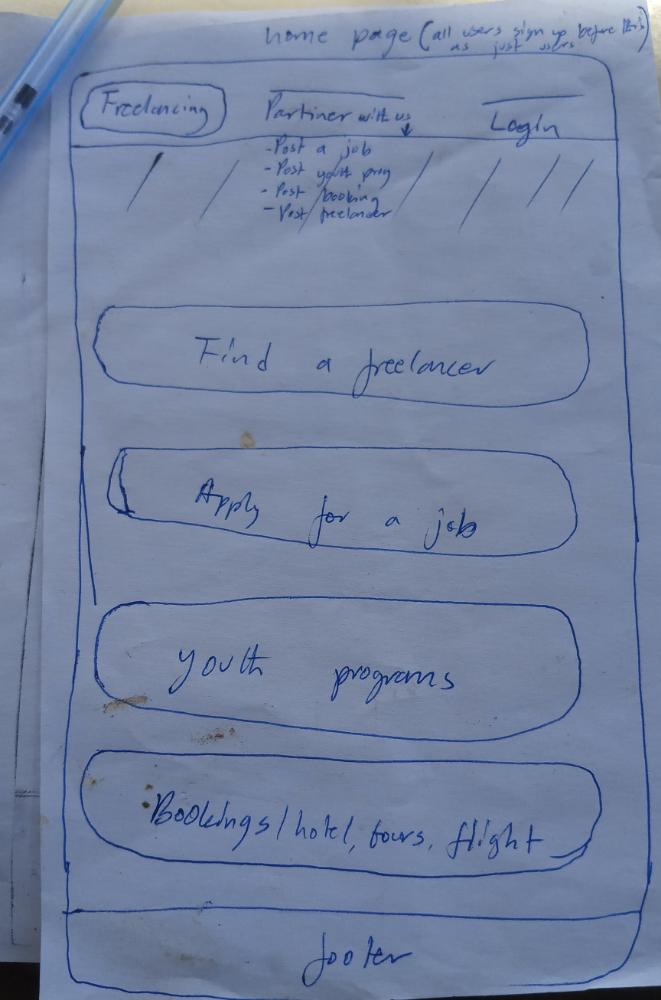 home page (all users sign up before this)
as just users
Freelancing
Partiner with us
Login
- Post a job
- Post youth prog
- Post booking
- Post freelander
Find a freelancer
Apply for a job
youth programs
Bookings/hotel, tours, flight
footer